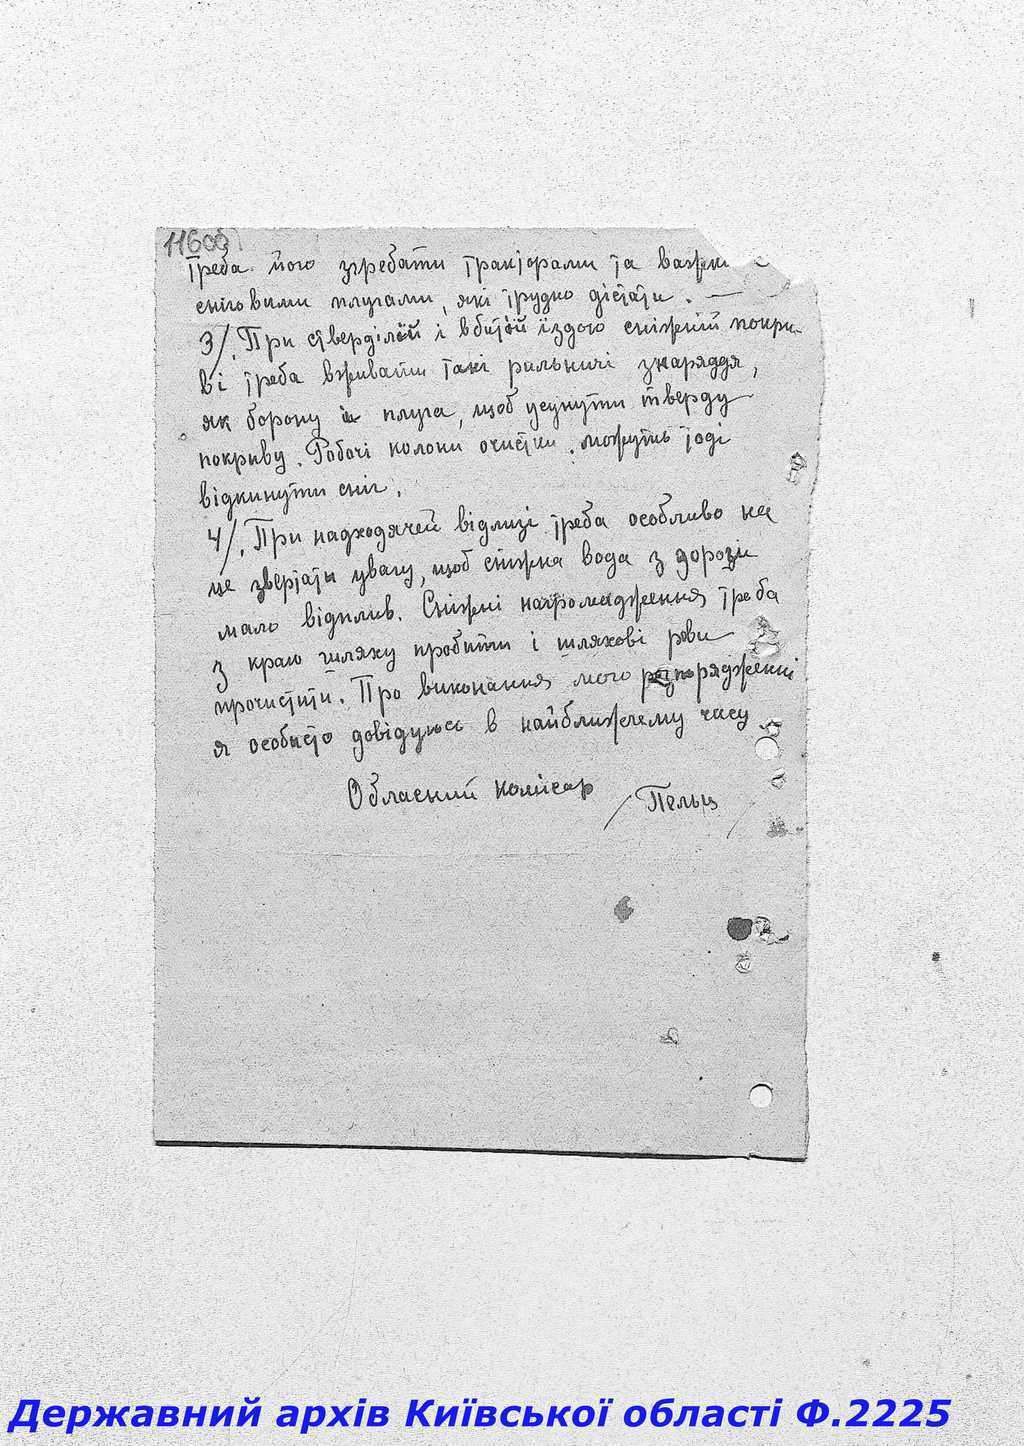 11600
треба його згребати тракторами та важки
сніговими плугами, які трудно дістати. —
3/. При стверділой і вбитой їздою сніжній покри-
ві треба вживати такі рильничі знаряддя,
як борону й плуга, щоб усунути тверду
покриву. Робочі колони очистки можуть тоді
відкинути сніг.
4/. При надходячей відлизі треба особливо на
це звертати увагу, щоб сніжна вода з дороги
мало відплив. Сніжні нагромадження треба
з краю шляху пробити і шляхові рови
прочистити. Про виконання мого розпорядженні
я особисто довідуюсь в найближчему часу
Обласний комісар / Пельц /
Державний архів Київської області Ф.2225